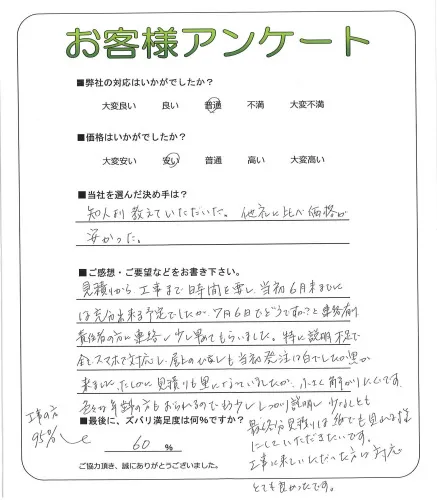 お客様アンケート
■弊社の対応はいかがでしたか?
大変良い 良い 普通 不満 大変不満
■価格はいかがでしたか?
大変安い 安い 普通 高い 大変高い
■当社を選んだ決め手は?
知人より教えていただいた。他社に比べ価格が
安かった。
■ご感想・ご要望などをお書き下さい。
見積りから工事まで日時間を要し、当初6月末までに
は充分出来る予定でしたが、7月6日でどうですか?と連絡有
責任者の方に連絡し少し早めてもらいました。特に説明不足で
全てスマホで対応し、屋上の
も当初発注は白でしたが黒が
来ました。たしかに見積りも黒になっていましたが、小さく解かりにくいです
色々な年齢の方もおられるのでもう少ししっかり説明し少なくとも
■最後に、ズバリ満足度は何%ですか?
最終的見積りは紙でも見れる様
にしていただきたいです。
60 %
工事の方
95%
工事に来ていただいた方の対応
とても良かったです。
ご協力頂き、誠にありがとうございました。